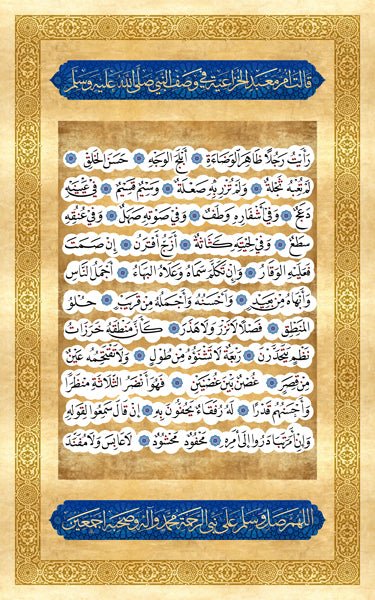 قالت أم معبد الخزاعية في وصف النبي صلى الله عليه وسلم
رَأَيْتُ رَجُلًا ظَاهِرَ الْوَضَاءَةِ ۞ أَبْلَجَ الْوَجْهِ ۞ حَسَنَ الْخَلْقِ
لَمْ تَعِبْهُ ثُجْلَةٌ ۞ وَلَمْ تُزْرِ بِهِ صَعْلَةٌ ۞ وَسِيمٌ قَسِيمٌ ۞ فِي عَيْنَيْهِ
دَعَجٌ ۞ وَفِي أَشْفَارِهِ وَطَفٌ ۞ وَفِي صَوْتِهِ صَهَلٌ ۞ وَفِي عُنُقِهِ
سَطَعٌ ۞ وَفِي لِحْيَتِهِ كَثَاثَةٌ ۞ أَزَجُّ أَقْرَنُ ۞ إِنْ صَمَتَ
فَعَلَيْهِ الْوَقَارُ ۞ وَإِنْ تَكَلَّمَ سَمَاهُ وَعَلَاهُ الْبَهَاءُ ۞ أَجْمَلُ النَّاسِ
وَأَبْهَاهُ مِنْ بَعِيدٍ ۞ وَأَحْسَنُهُ وَأَجْمَلُهُ مِنْ قَرِيبٍ ۞ حُلْوُ
الْمَنْطِقِ ۞ فَصْلًا لَا نَزْرَ وَلَا هَذَرَ ۞ كَأَنَّ مَنْطِقَهُ خَرَزَاتُ
نَظْمٍ يَتَحَدَّرْنَ ۞ رَبْعَةٌ لَا تَشْنَؤُهُ مِنْ طُولٍ ۞ وَلَا تَقْتَحِمُهُ عَيْنٌ
مِنْ قِصَرٍ ۞ غُصْنٌ بَيْنَ غُصْنَيْنِ ۞ فَهُوَ أَنْضَرُ الثَّلَاثَةِ مَنْظَرًا
وَأَحْسَنُهُمْ قَدْرًا ۞ لَهُ رُفَقَاءُ يَحُفُّونَ بِهِ ۞ إِنْ قَالَ سَمِعُوا لِقَوْلِهِ
وَإِنْ أَمَرَ تَبَادَرُوا إِلَى أَمْرِهِ ۞ مَحْفُودٌ مَحْشُودٌ ۞ لَا عَابِسَ وَلَا مُفْنِدَ
اللهم صل وسلم على نبي الرحمة محمد وآله وصحبه أجمعين